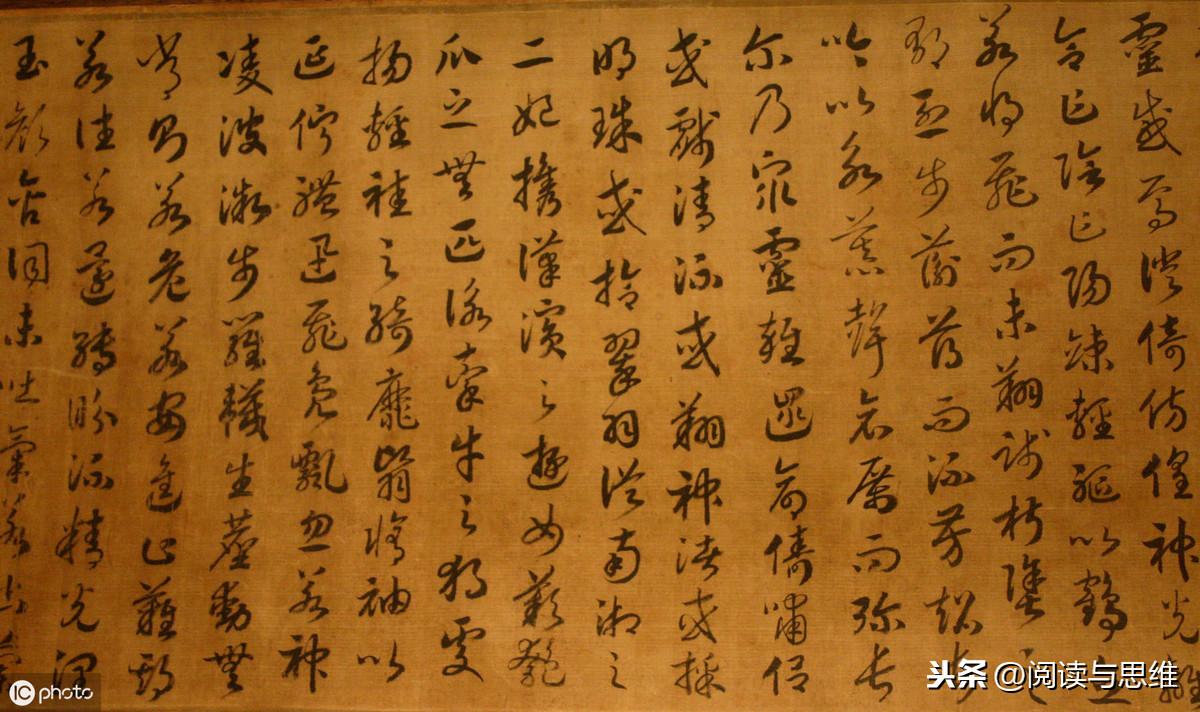 靈感焉徙倚傍徨神光離
合乍陰乍陽竦輕軀以鶴立
若將飛而未翔踐椒塗之
郁烈步蘅薄而流芳超長
吟以永慕聲哀厲而彌長
尔乃眾靈雜遝命儔嘯侶
或戲清流或翔神渚或採
明珠或拾翠羽從南湘之
二妃攜漢濱之遊女歎匏
瓜之無匹詠牽牛之獨處
揚輕袿之綺靡翳脩袖以
延佇體迅飛鳧飄忽若神
凌波微步羅襪生塵動無
常則若危若安進止難期
若往若還轉眄流精光潤
玉顏含詞未吐氣若幽蘭
iC photo
头条 @阅读与思维